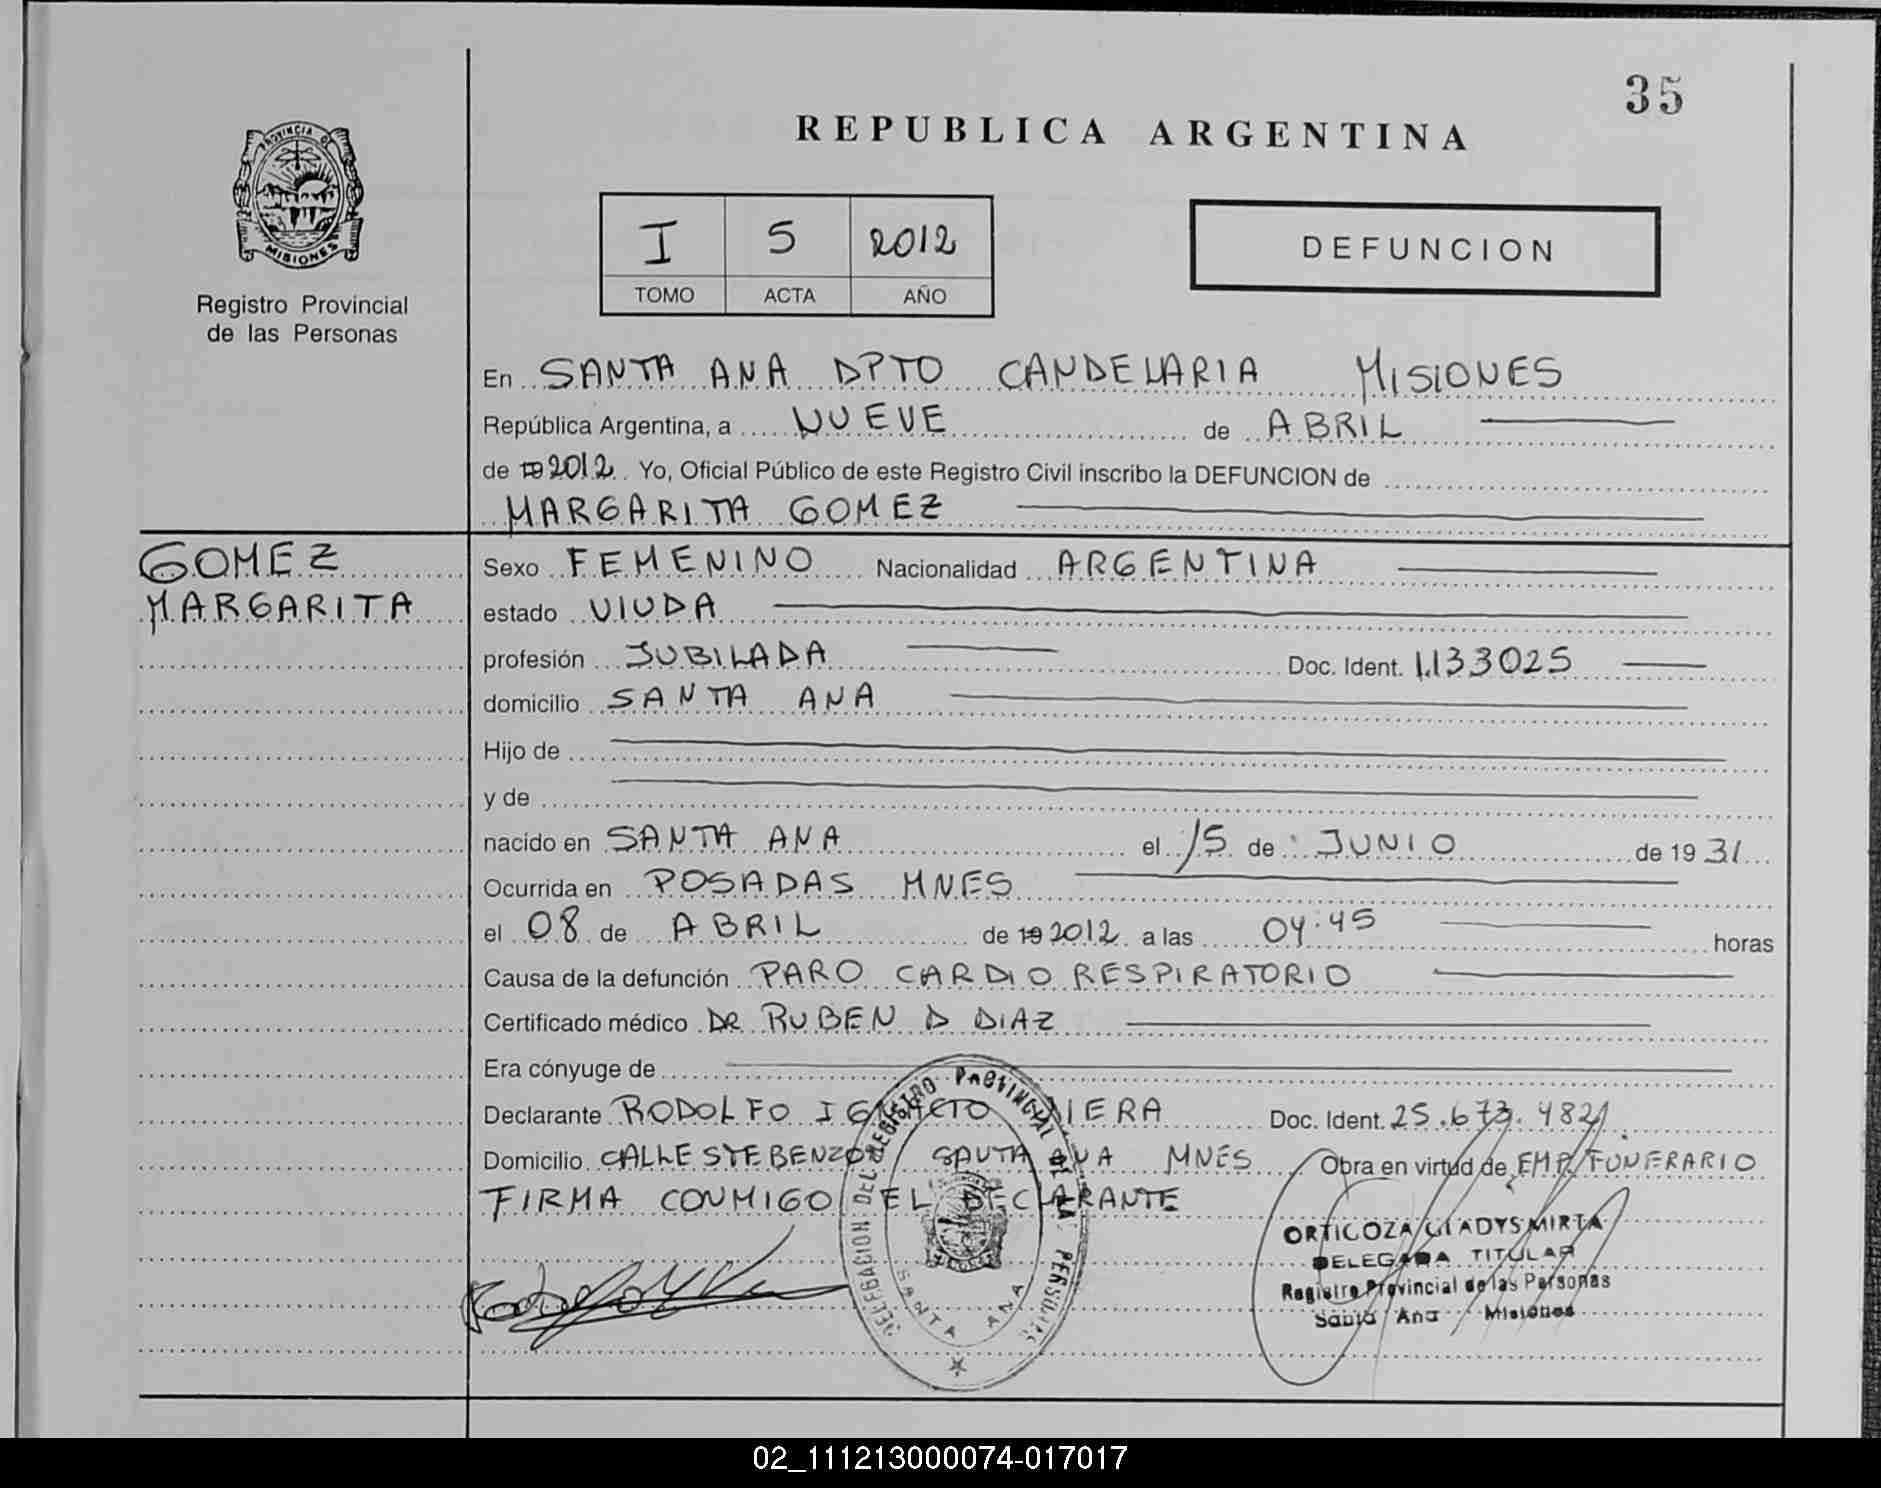 35
REPUBLICA ARGENTINA
PROVINCIA DE
MISIONES
Registro Provincial
de las Personas
I 5 2012
TOMO ACTA AÑO
DEFUNCION
En SANTA ANA DPTO CANDELARIA MISIONES
República Argentina, a NUEVE de ABRIL
de 19 2012 Yo, Oficial Público de este Registro Civil inscribo la DEFUNCION de
MARGARITA GOMEZ
GOMEZ
MARGARITA
Sexo FEMENINO Nacionalidad ARGENTINA
estado VIUDA
profesión JUBILADA Doc. Ident. 1.133025
domicilio SANTA ANA
Hijo de
y de
nacido en SANTA ANA el 15 de JUNIO de 19 31
Ocurrida en POSADAS MNES
el 08 de ABRIL de 19 2012 a las 04:45 horas
Causa de la defunción PARO CARDIO RESPIRATORIO
Certificado médico DR RUBEN D DIAZ
Era cónyuge de
Declarante RODOLFO IGNACIO VIERA Doc. Ident. 25.673.482
Domicilio CALLE STEBENZON SANTA ANA MNES Obra en virtud de EMP. FUNERARIO
FIRMA CONMIGO EL DECLARANTE
DELEGACION DEL REGISTRO PROVINCIAL DE LAS PERSONAS
SANTA ANA
ORTIGOZA GLADYS MIRTA
DELEGADA TITULAR
Registro Provincial de las Personas
Santa Ana Misiones
02_111213000074-017017